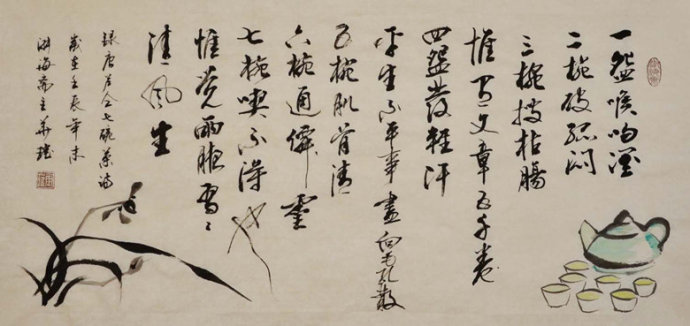 一碗喉吻潤
二碗破孤悶
三碗搜枯腸
惟有文章五千卷
四碗發輕汗
平生不平事盡向毛孔散
五碗肌骨清
六碗通仙靈
七碗喫不得也
惟覺兩腋習習
清風生
錄唐盧仝七碗茶詩
歲在壬辰年末